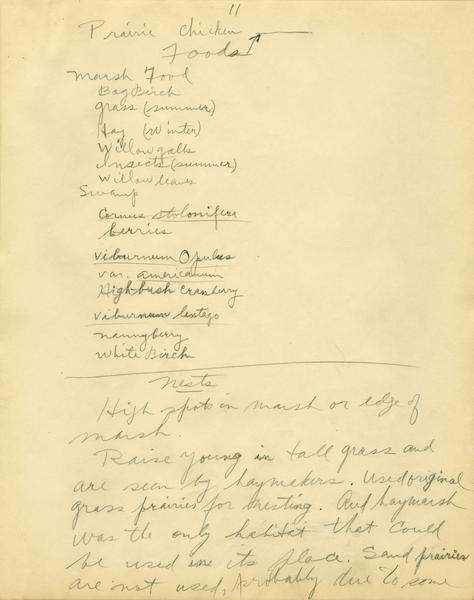 11
Prairie Chicken
Foods
Marsh Food
Bog Birch
grass (summer)
Hay (winter)
Willow galls
Insects (summer)
Willow leaves
Swamp
Cornus stolonifera
berries
Viburnum Opulus
var. americanum
Highbush Cranberry
Viburnum lentego
nannyberry
White Birch
Nests
High spots in marsh or edge of
marsh.
Raise young in tall grass and
are seen by haymakers. Used original
grass prairies for nesting. And haymarsh
was the only habitat that could
be used in its place. Sand prairies
are not used, probably due to some